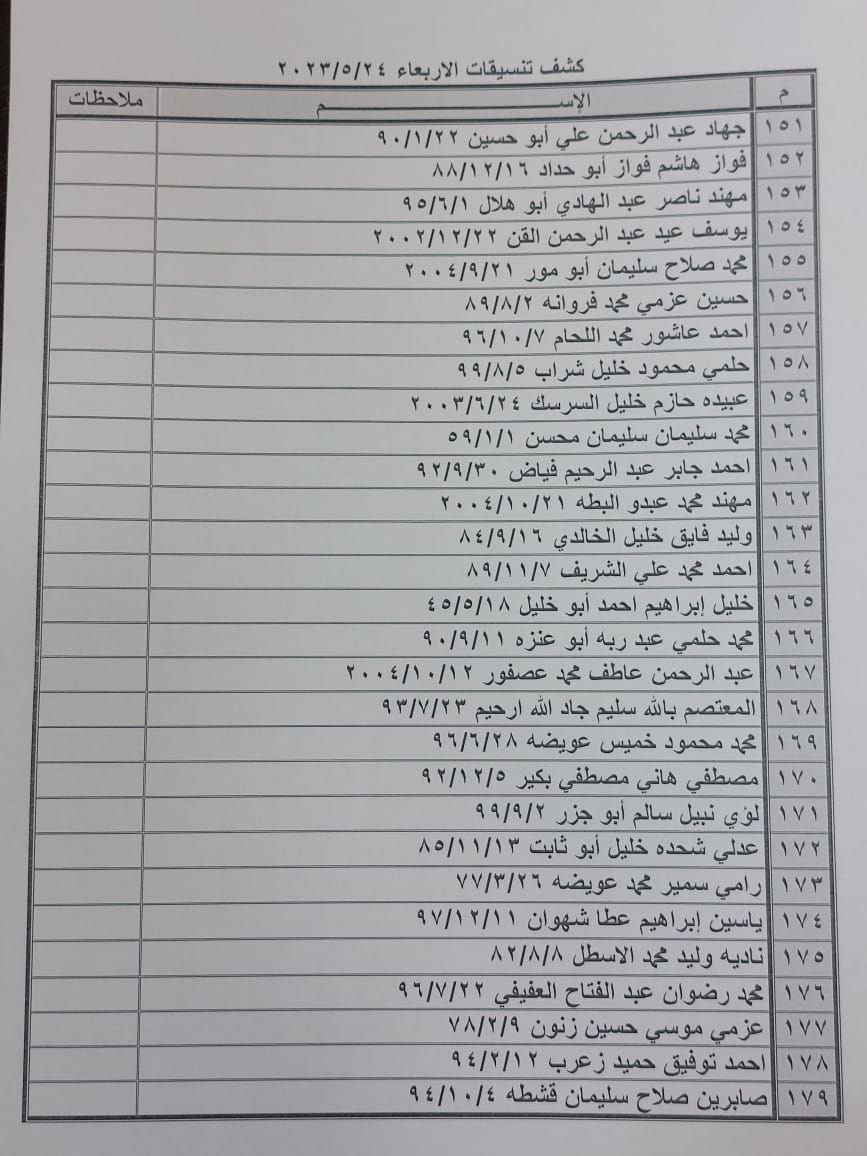 كشف تنسيقات الاربعاء ٢٠٢٣/٥/٢٤
م الإســـــــــــم ملاحظات
١٥١ جهاد عبد الرحمن علي أبو حسين ٩٠/١/٢٢
١٥٢ فواز هاشم فواز أبو حداد ٨٨/١٢/١٦
١٥٣ مهند ناصر عبد الهادي أبو هلال ٩٥/٦/١
١٥٤ يوسف عيد عبد الرحمن القن ٢٠٠٢/١٢/٢٢
١٥٥ محمد صلاح سليمان أبو مور ٢٠٠٤/٩/٢١
١٥٦ حسين عزمي محمد فروانه ٨٩/٨/٢
١٥٧ احمد عاشور محمد اللحام ٩٦/١٠/٧
١٥٨ حلمي محمود خليل شراب ٩٩/٨/٥
١٥٩ عبيده حازم خليل السرسك ٢٠٠٣/٦/٢٤
١٦٠ محمد سليمان سليمان محسن ٥٩/١/١
١٦١ احمد جابر عبد الرحيم فياض ٩٢/٩/٣٠
١٦٢ مهند محمد عبدو البطه ٢٠٠٤/١٠/٢١
١٦٣ وليد فايق خليل الخالدي ٨٤/٩/١٦
١٦٤ احمد محمد علي الشريف ٨٩/١١/٧
١٦٥ خليل إبراهيم احمد أبو خليل ٤٥/٥/١٨
١٦٦ محمد حلمي عبد ربه أبو عنزه ٩٠/٩/١١
١٦٧ عبد الرحمن عاطف محمد عصفور ٢٠٠٤/١٠/١٢
١٦٨ المعتصم بالله سليم جاد الله ارحيم ٩٣/٧/٢٣
١٦٩ محمد محمود خميس عويضه ٩٦/٦/٢٨
١٧٠ مصطفي هاني مصطفي بكير ٩٢/١٢/٥
١٧١ لؤي نبيل سالم أبو جزر ٩٩/٩/٢
١٧٢ عدلي شحده خليل أبو ثابت ٨٥/١١/١٣
١٧٣ رامي سمير محمد عويضه ٧٧/٣/٢٦
١٧٤ ياسين إبراهيم عطا شهوان ٩٧/١٢/١١
١٧٥ ناديه وليد محمد الاسطل ٨٢/٨/٨
١٧٦ محمد رضوان عبد الفتاح العفيفي ٩٦/٧/٢٢
١٧٧ عزمي موسي حسين زنون ٧٨/٢/٩
١٧٨ احمد توفيق حميد زعرب ٩٤/٢/١٢
١٧٩ صابرين صلاح سليمان قشطه ٩٤/١٠/٤